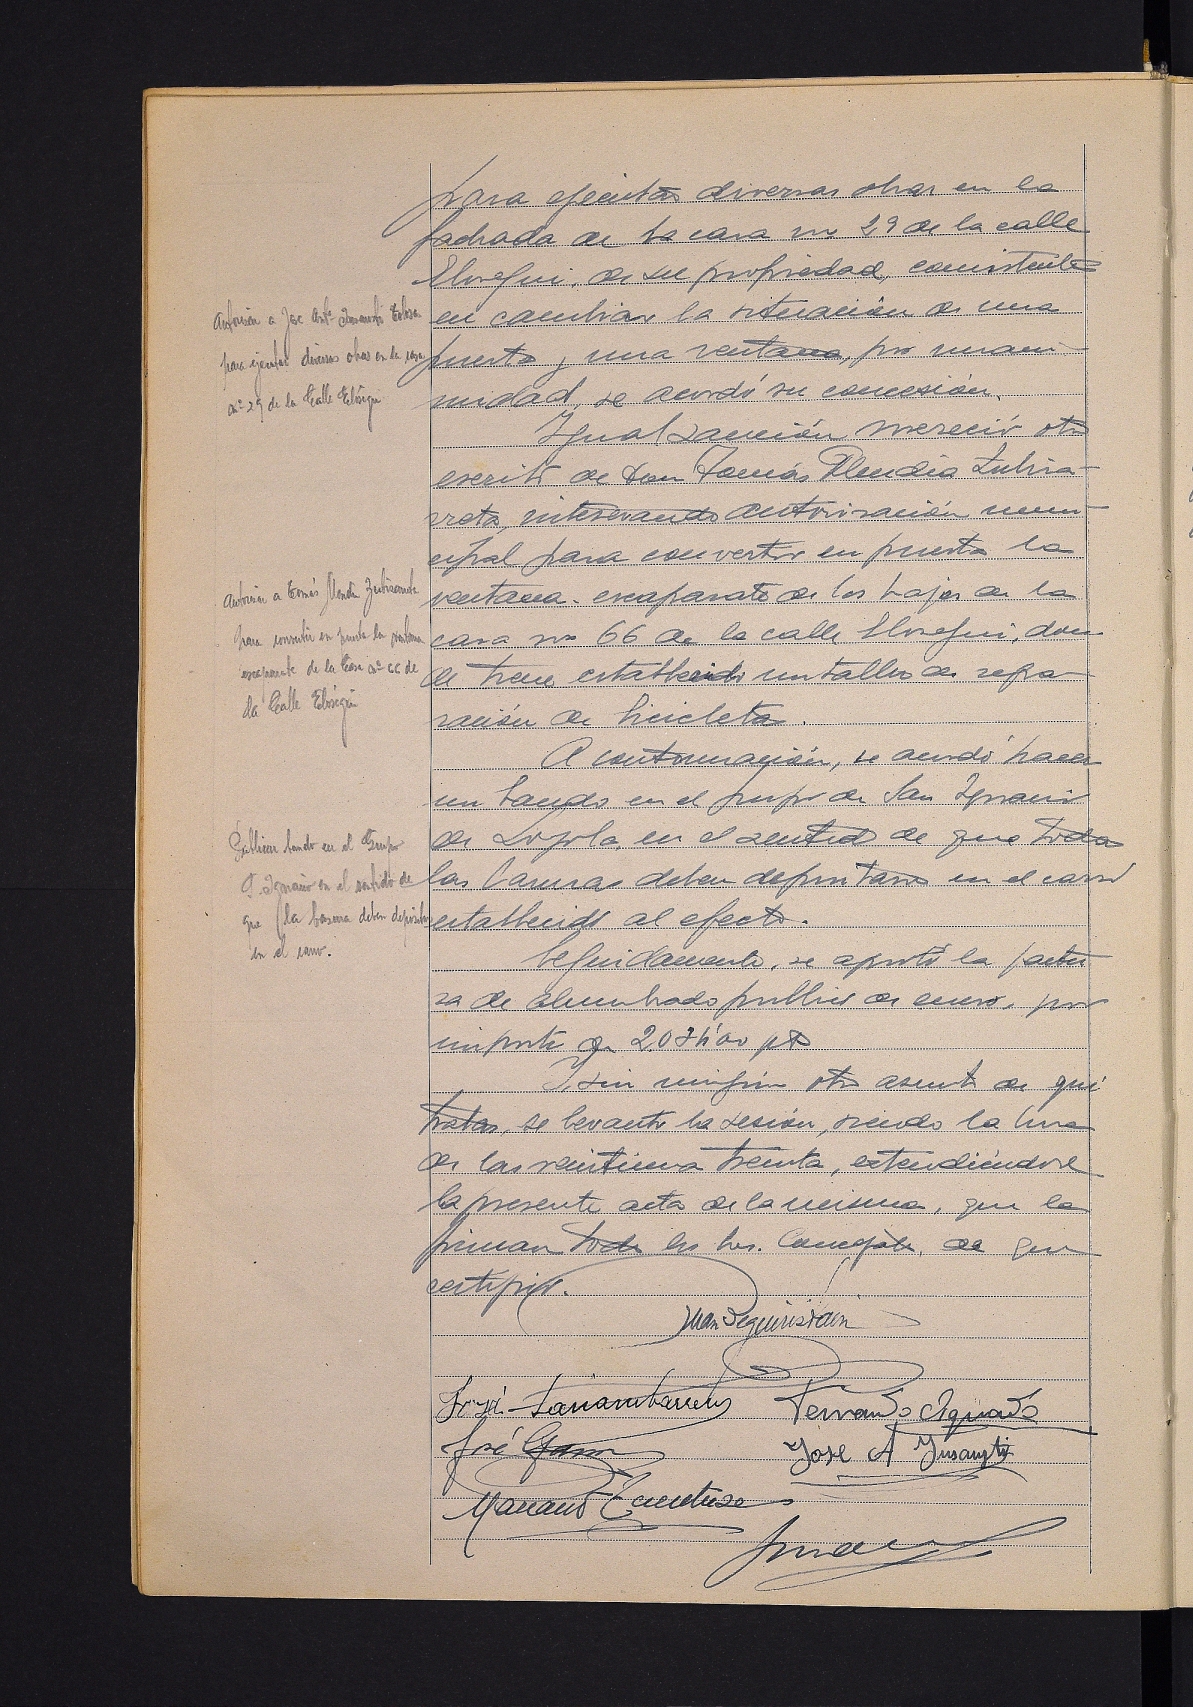 para ejecutar diversas obras en la
fachada de la casa nº 29 de la calle
Elosegui, de su propiedad, consistentes
en cambiar la situación de una
puerta y una ventana, por unani-
midad, se acordó su concesión.
Igual sanción mereció otro
escrito de Don Tomás Mendia Zubiza-
rreta, interesando autorización muni-
cipal para convertir en puerta la
ventana-escaparate de los bajos de la
casa nº 66 de la calle Elosegui, don-
de tiene establecido un taller de repa-
ración de bicicletas.
A continuación, se acordó hacer
un bando en el grupo de San Ignacio
de Loyola, en el sentido de que todas
las basuras deben depositarse en el carro
establecido al efecto.
Seguidamente, se aprobó la factu-
ra de alumbrado público de enero, por
importe de ptas
Y sin ningún otro asunto de qué
tratar, se levantó la sesión, siendo la hora
de las veintiuna treinta, extendiéndose
la presente acta de la misma, que la
firman todos los Srs. Concejales, de que
certifico.
Autorizan a José Antº Tolosa
para ejecutar diversas obras en la casa
nº 29 de la Calle Elósegui
Autorizan a Tomás Mendia Zubizarreta
para convertir en puerta la ventana
escaparate de la Casa nº 66 de
la Calle Elósegui
Publicar bando en el Grupo
S. Ignacio en el sentido de
que la basura deben depositar
en el carro.
Juan Peguiristain
José
Fernando Aguado
José
José A
Mariano